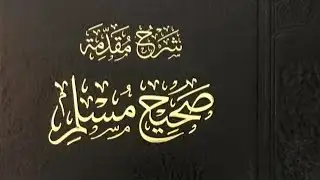 شَرْحُ مُقَدِّمَةِ
صَحِيحِ مُسْلِمٍ